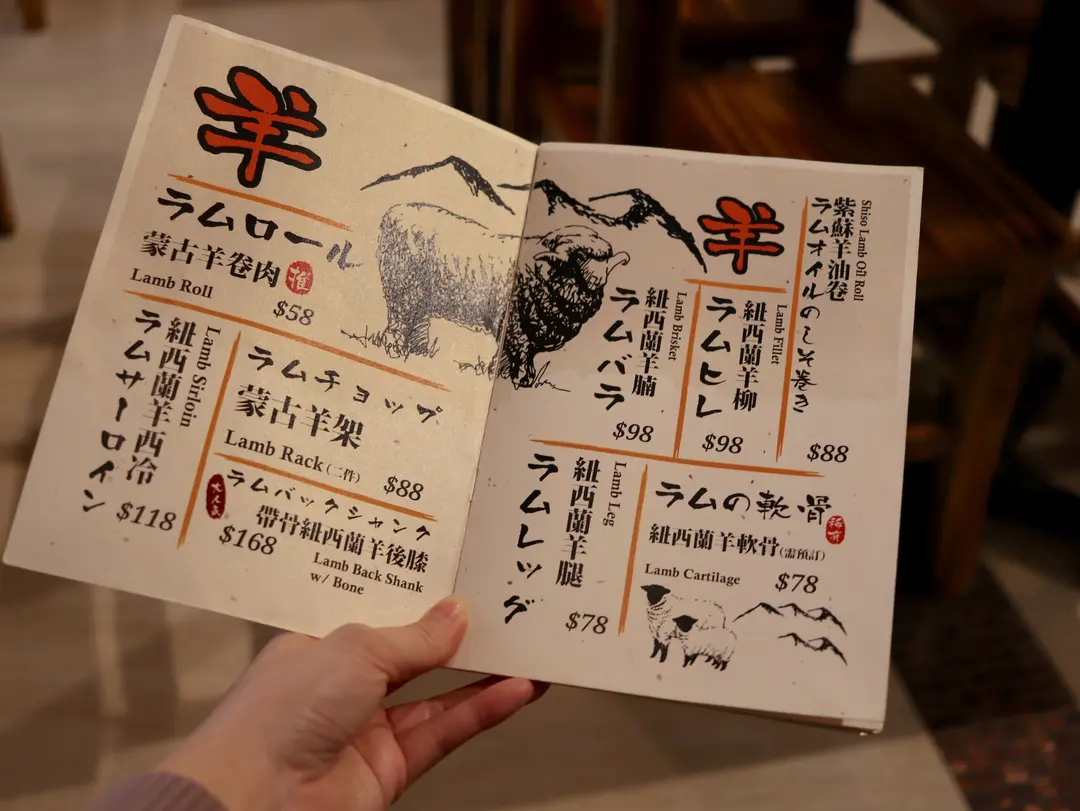 羊
ラムロール
蒙古羊卷肉 推
Lamb Roll
$58
ラムサーロイン
紐西蘭羊西冷
Lamb Sirloin
$118
ラムチョップ
蒙古羊架
Lamb Rack (二件)
$88
大人気
ラムバックシャンク
帶骨紐西蘭羊後膝
$168
Lamb Back Shank
w/ Bone
羊
Shiso Lamb Oil Roll
紫蘇羊油卷
ラムオイルのしそ巻き
$88
Lamb Fillet
紐西蘭羊柳
ラムヒレ
$98
Lamb Brisket
紐西蘭羊腩
ラムバラ
$98
Lamb Leg
紐西蘭羊腿
ラムレッグ
$78
ラムの軟骨
紐西蘭羊軟骨(需預訂)
Lamb Cartilage
$78